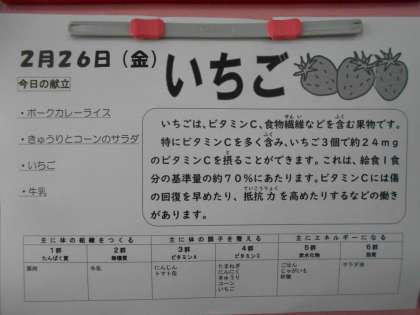 2月26日（金）
いちご
今日の献立
・ポークカレーライス
・きゅうりとコーンのサラダ
・いちご
・牛乳
いちごは、ビタミンC、食物繊維などを含む果物です。
特にビタミンCを多く含み、いちご3個で約24mg
のビタミンCを摂ることができます。これは、給食1食
分の基準量の約70％にあたります。ビタミンCには傷
の回復を早めたり、抵抗力を高めたりするなどの働き
があります。
主に体の組織をつくる 主に体の調子を整える 主にエネルギーになる
1群 2群 3群 4群 5群 6群
たんぱく質 無機質 ビタミンA ビタミンC 炭水化物 脂質
豚肉 牛乳 にんじん たまねぎ ごはん サラダ油
トマト缶 にんにく じゃがいも
きゅうり 砂糖
コーン
いちご